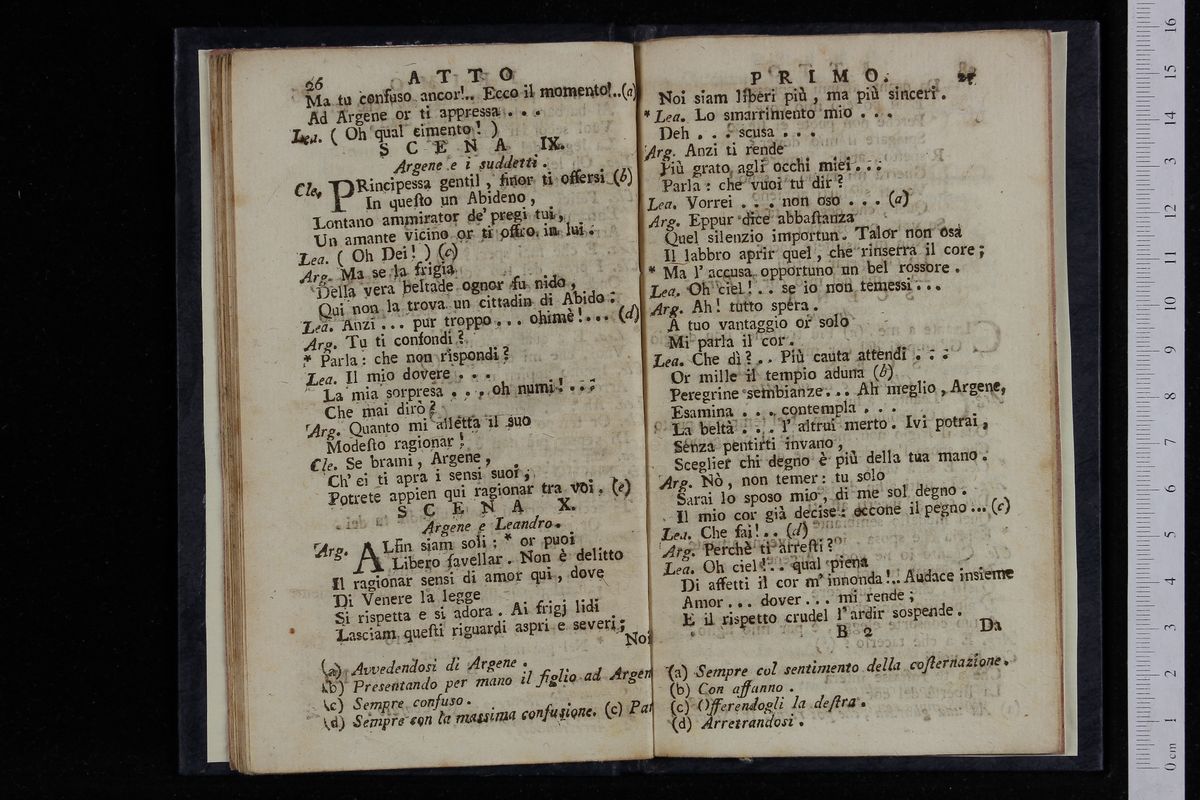 26 ATTO
Ma tu confuso ancor!.. Ecco il momento!..(a)
Ad Argene or ti appressa . . .
Lea. ( Oh qual cimento! )
SCENA IX.
Argene e i suddetti.
Cle. PRincipessa gentil, finor ti offersi (b)
In questo un Abideno,
Lontano ammirator de' pregi tui,
Un amante vicino or ti offro in lui.
Lea. ( Oh Dei! ) (c)
Arg. Ma se la frigia
Della vera beltade ognor fu nido,
Qui non la trova un cittadin di Abido:
Lea. Anzi... pur troppo... ohimè!... (d)
Arg. Tu ti confondi?
* Parla: che non rispondi?
Lea. Il mio dovere . . .
La mia sorpresa . . . oh numi! . . .
Che mai dirò?
Arg. Quanto mi alletta il suo
Modesto ragionar!
Cle. Se brami, Argene,
Ch' ei ti apra i sensi suoi,
Potrete appien qui ragionar tra voi. (e)
SCENA X.
Argene e Leandro.
Arg. ALfin siam soli: * or puoi
Libero favellar. Non è delitto
Il ragionar sensi di amor qui, dove
Di Venere la legge
Si rispetta e si adora. Ai frigj lidi
Lasciam questi riguardi aspri e severi;
Noi
(a) Avvedendosi di Argene.
(b) Presentando per mano il figlio ad Argen
(c) Sempre confuso.
(d) Sempre con la massima confusione. (c) Par
PRIMO. 27
Noi siam liberi più, ma più sinceri.
* Lea. Lo smarrimento mio . . .
Deh . . . scusa . . .
Arg. Anzi ti rende
Più grato agli occhi miei. . .
Parla: che vuoi tu dir?
Lea. Vorrei . . . non oso . . . (a)
Arg. Eppur dice abbastanza
Quel silenzio importun. Talor non osa
Il labbro aprir quel, che rinserra il core;
* Ma l' accusa opportuno un bel rossore.
Lea. Oh ciel! . . se io non temessi . . .
Arg. Ah! tutto spera.
A tuo vantaggio or solo
Mi parla il cor.
Lea. Che dì? . . Più cauta attendi . . .
Or mille il tempio aduna (b)
Peregrine sembianze... Ah meglio, Argene,
Esamina . . . contempla . . .
La beltà . . . l' altrui merto. Ivi potrai,
Senza pentirti invano,
Sceglier chi degno è più della tua mano.
Arg. Nò, non temer: tu solo
Sarai lo sposo mio, di me sol degno.
Il mio cor già decise: eccone il pegno... (c)
Lea. Che fai!.. (d)
Arg. Perchè ti arresti?
Lea. Oh ciel!.. qual piena
Di affetti il cor m' innonda!.. Audace insieme
Amor... dover... mi rende;
E il rispetto crudel l'ardir sospende.
B 2 Da
(a) Sempre col sentimento della costernazione.
(b) Con affanno.
(c) Offerendogli la destra.
(d) Arretrandosi.
0 cm 1 2 3 4 5 6 7 8 9 10 11 12 13 14 15 16